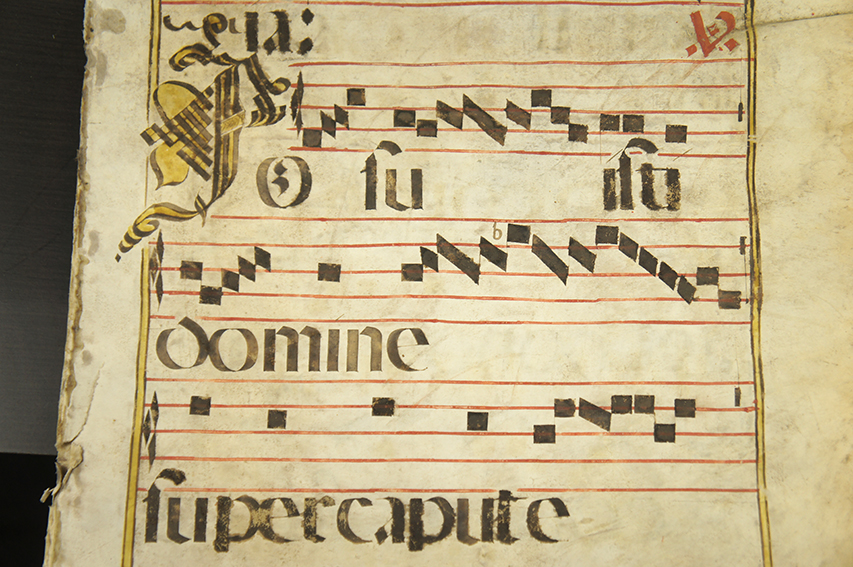 Po ſu iſti
domine
ſupercapute